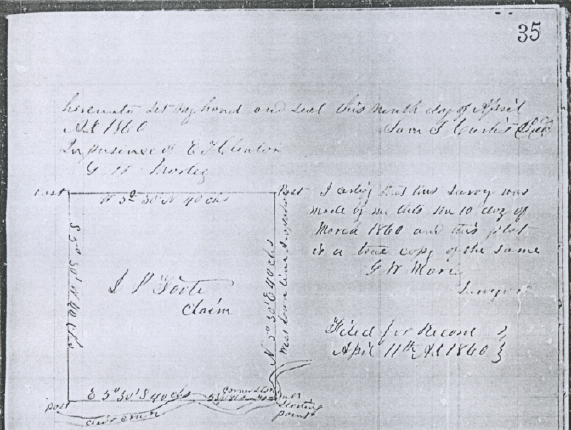 35
hereunto set my hand and seal this ninth day of April
A.D. 1860
Sam S. Curtis
In presence of E F Clinton
G W
post
N 5° 30' W 40 chs
Post
S 5° 30' W 40 chs
J P Foote
Claim
N 5° 30' E 40 chs
West line
E 5° 30' S 40 chs
post
Corner
starting
point
I certify that this survey was
made by me this the 10 day of
March 1860 and this plat
is a true copy of the same
G W
Surveyor
Filed for Record
April 11th A.D. 1860